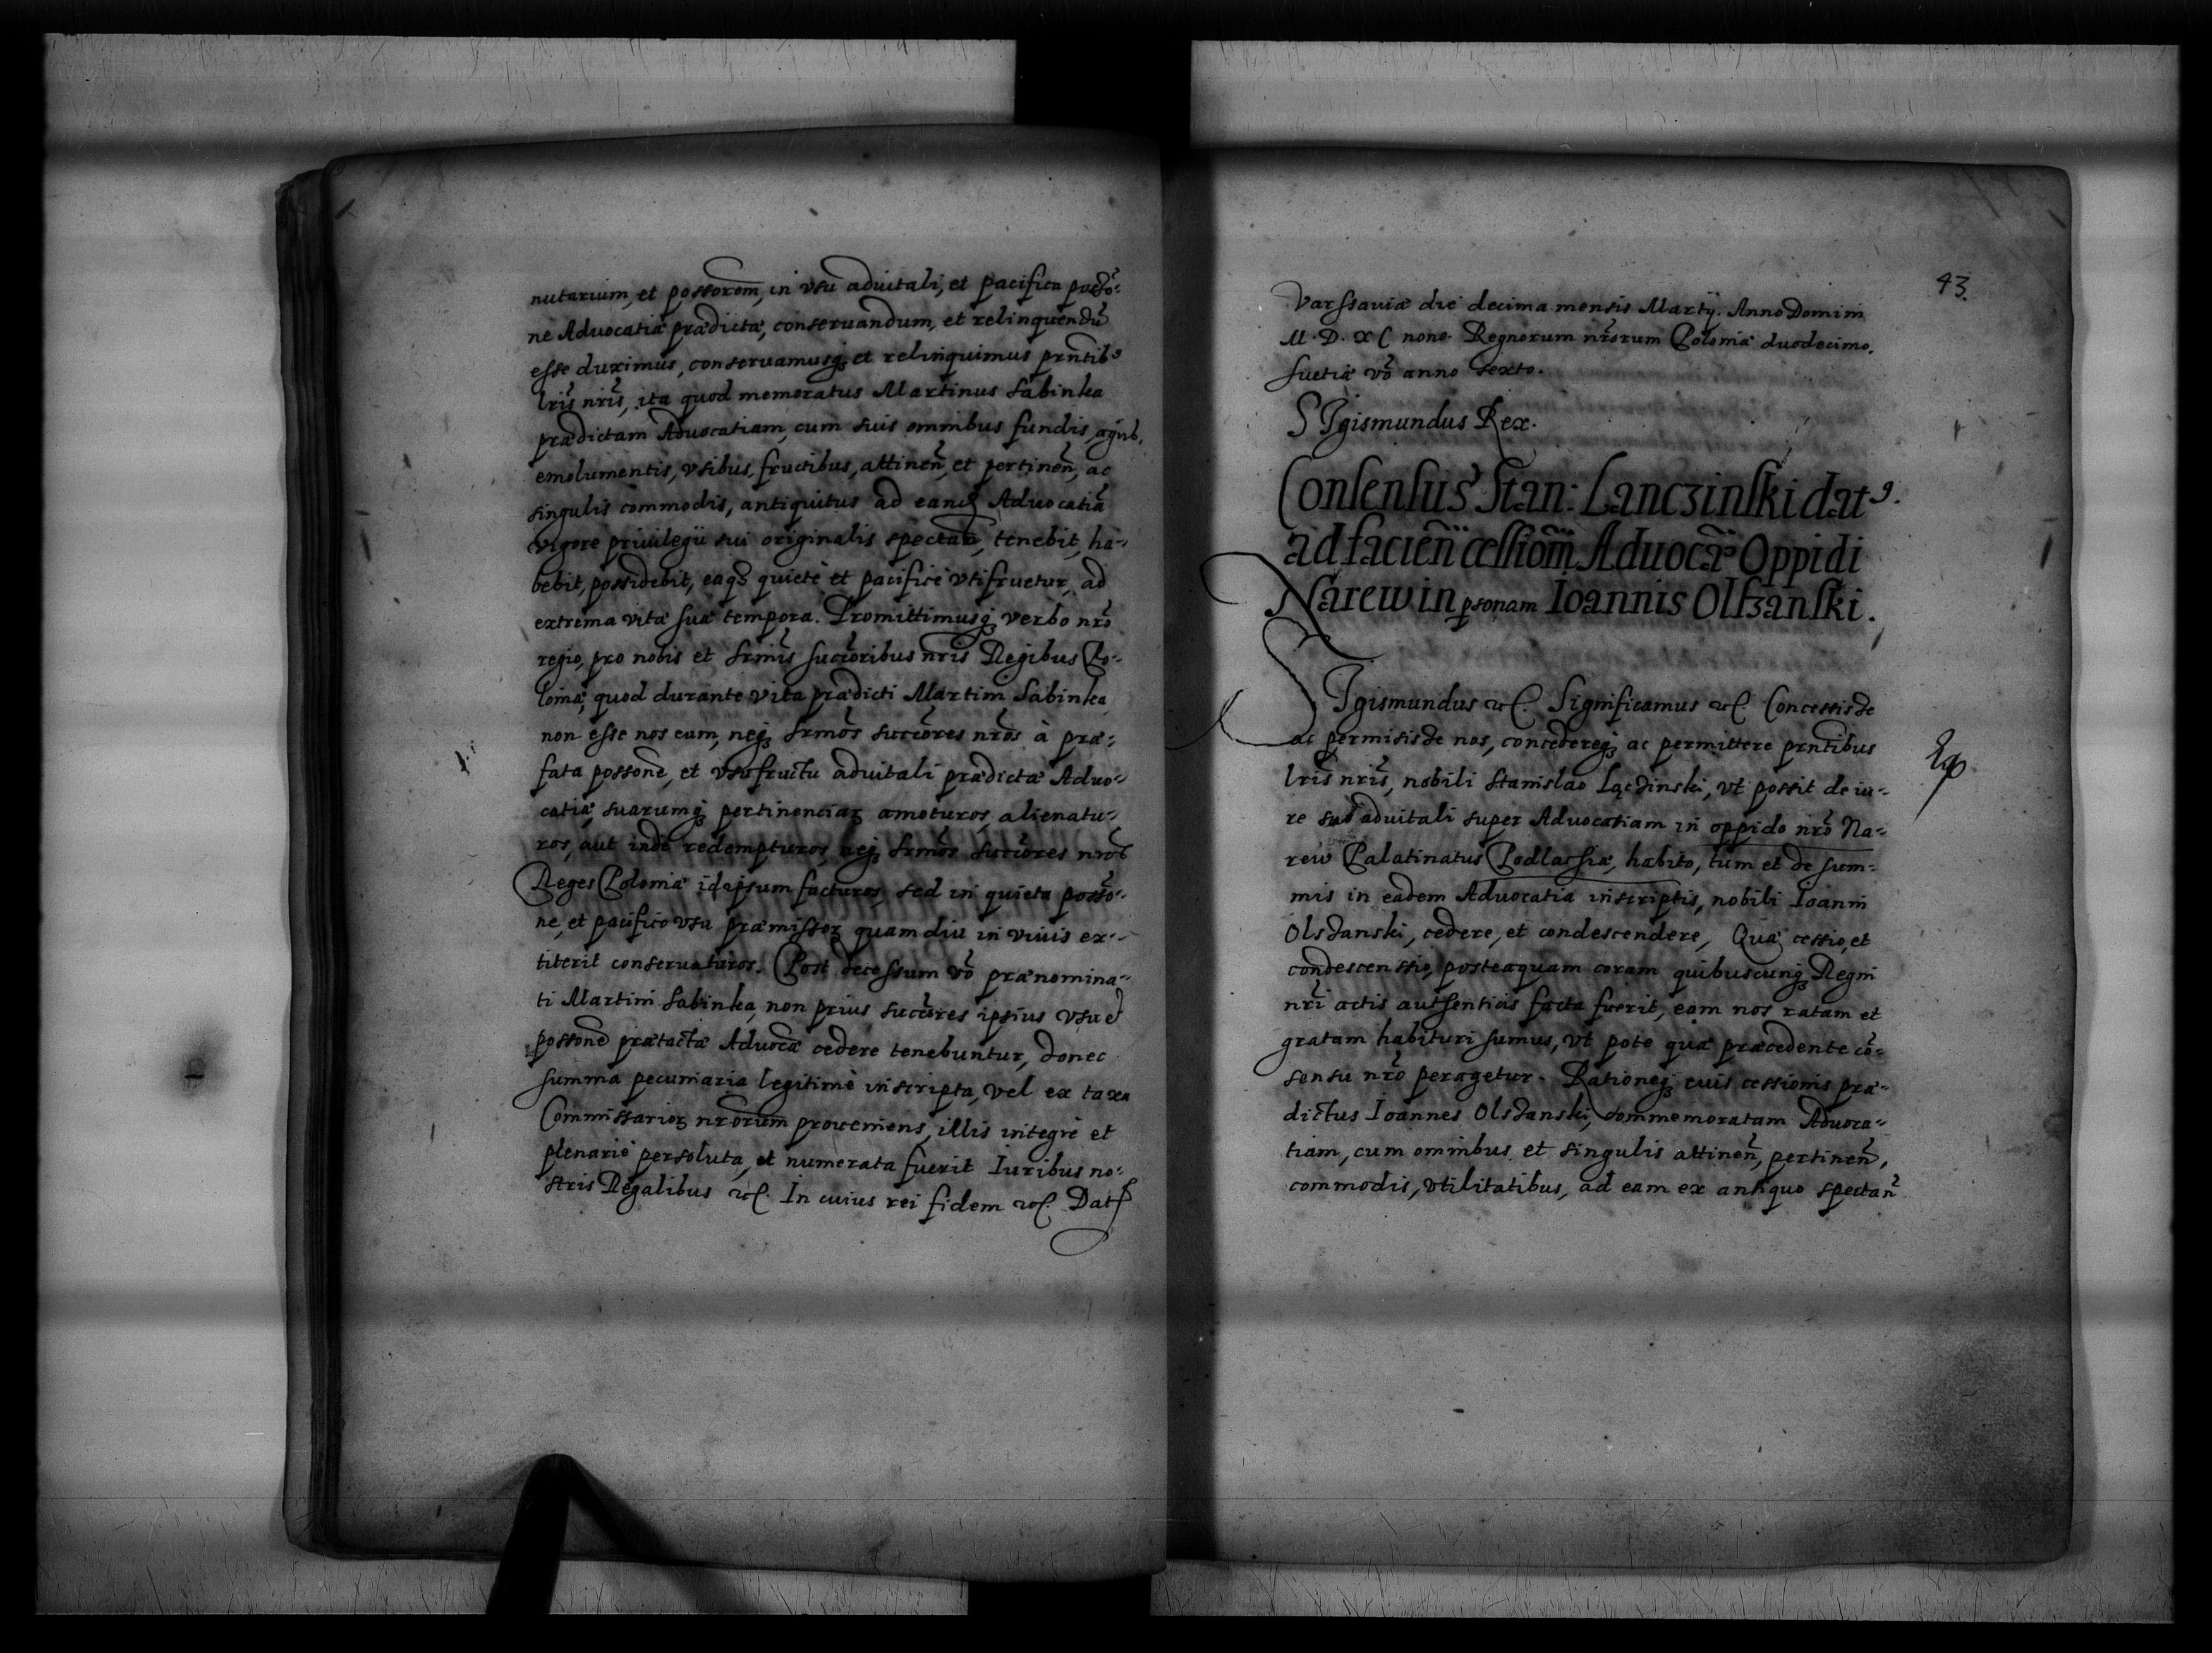 nutarium, et possorem, in vsu aduitali, et pacifica possõ-
ne Aduocatiæ prædictæ, conseruandum, et relinquendũ
esse duximus, conseruamusq; et relinquimus prñtib9
lris nris, ita quod memoratus Martinus Sabinka
prædictam Aduocatiam, cum suis omnibus fundis, agris,
emolumentis, vsibus, fructibus, attineñ, et pertineñ, ac
singulis commodis, antiquitus ad eand Aduocatiã
vigore priuilegii sui originalis spectañ, tenebit, ha-
bebit, possidebit, eaq3 quietè et pacificè vtifruetur, ad
extrema vitæ suæ tempora. Promittimusq; verbo nrõ
regio, pro nobis et Srmis succõribus nris Regibus Po-
loniæ, quod durante vita prædicti Martini Sabinka
non esse nos eum, neq; Srmõs succõres nrõs à præ-
fata possone, et vsufructu aduitali prædictæ Aduo-
catiæ, suarumq; pertinenciaʒ amoturos, alienatu-
ros, aut inde redempturos, neq; Srmõs succõres nrõs
Reges Poloniæ idipsum facturos, sed in quieta possõ-
ne, et pacifico vsu præmissoʒ quam diu in viuis ex-
titerit conseruaturos. Post decessum võ prænomina-
ti Martini Sabinka, non prius succõres ipsius vsu et
possone prætactæ Aduocæ cedere tenebuntur, donec
summa pecuniaria legitimè inscripta, vel ex taxa
Commissarioʒ nrorum proueniens, illis integrè et
plenariè persoluta, et numerata fuerit Iuribus no-
stris Regalibus etc. In cuius rei fidem etc. Dat
43.
Varssauiæ die decima mensis Martij. Anno Domini
M. D. XC nono. Regnorum nrorum Poloniæ duodecimo.
Suetiæ võ anno sexto.
SIgismundus Rex.
Consensus Stan: Lanczinski dat9.
ad facieñ cessiom Aduocæ Oppidi
Narew in psonam Ioannis Olszanski.
SIgismundus etc. Significamus etc. Concessisse
ac permisisse nos, concedereq; ac permittere prñtibus
lris nris, nobili Stanislao Lączinski, vt possit de iu-
re suo aduitali super Aduocatiam in oppido nrõ Na-
rew Palatinatus Podlassiæ, habito, tum et de sum-
mis in eadem Aduocatia inscriptis, nobili Ioanni
Olszanski, cedere, et condescendere, Quæ cessio, et
condescensio, posteaquam coram quibuscunq; Regni
nri actis autsenticis facta fuerit, eam nos ratam et
gratam habituri sumus, vt pote quæ præcedente cõ-
sensu nrõ peragetur. Rationeq; euis cessionis præ-
dictus Ioannes Olszanski, commemoratam Aduoca-
tiam, cum omnibus et singulis attineñ, pertineñ,
commodis, vtilitatibus, ad eam ex antiquo spectañ